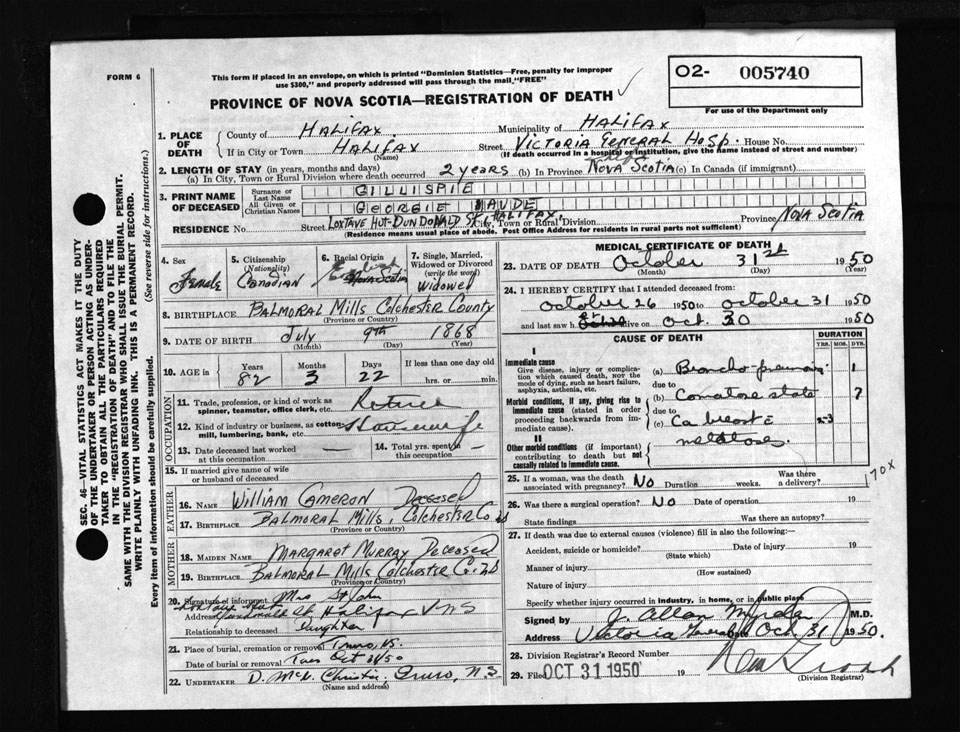 FORM 6
This form if placed in an envelope, on which is printed "Dominion Statistics—Free, penalty for improper
use $300," and properly addressed will pass through the mail "FREE"
PROVINCE OF NOVA SCOTIA—REGISTRATION OF DEATH
02- 005740
For use of the Department only
SEC. 46—VITAL STATISTICS ACT MAKES IT THE DUTY
OF THE UNDERTAKER OR PERSON ACTING AS UNDER-
TAKER TO OBTAIN ALL THE PARTICULARS REQUIRED
IN THE "REGISTRATION OF DEATH" AND TO FILE THE
SAME WITH THE DIVISION REGISTRAR WHO SHALL ISSUE THE BURIAL PERMIT.
WRITE PLAINLY WITH UNFADING INK. THIS IS A PERMANENT RECORD.
Every item of information should be carefully supplied. (See reverse side for instructions.)
1. PLACE OF DEATH
County of HALIFAX Municipality of HALIFAX
If in City or Town HALIFAX Street VICTORIA GENERAL HOSP. House No.
(Name) (If death occurred in a hospital or institution, give the name instead of street and number)
2. LENGTH OF STAY (in years, months and days)
(a) In City, Town or Rural Division where death occurred 2 years (b) In Province NOVA SCOTIA (c) In Canada (if immigrant)
3. PRINT NAME OF DECEASED
Surname or Last Name GILLISPIE
All Given or Christian Names GEORGIE MAUDE
RESIDENCE No. Street LOXTAVE HUT-DUNDONALD ST, HALIFAX, City, Town or Rural Division Province NOVA SCOTIA
(Residence means usual place of abode. Post Office Address for residents in rural parts not sufficient)
4. Sex Female
5. Citizenship (Nationality) Canadian
6. Racial Origin Nova Scotia
7. Single, Married, Widowed or Divorced (write the word) Widowed
8. BIRTHPLACE BALMORAL MILLS COLCHESTER COUNTY
(Province or Country)
9. DATE OF BIRTH July 9th 1868
(Month) (Day) (Year)
10. AGE in Years Months Days If less than one day old
82 3 22 hrs. or min.
OCCUPATION
11. Trade, profession or kind of work as spinner, teamster, office clerk, etc. Retired
12. Kind of industry or business, as cotton mill, lumbering, bank, etc. Housewife
13. Date deceased last worked at this occupation —
14. Total yrs. spent in this occupation —
15. If married give name of wife or husband of deceased
FATHER
16. NAME WILLIAM CAMERON DECEASED
17. BIRTHPLACE BALMORAL MILLS, COLCHESTER CO NS
(Province or Country)
MOTHER
18. MAIDEN NAME MARGAROT MURRAY DECEASED
19. BIRTHPLACE BALMORAL MILLS COLCHESTER CO. NS
(Province or Country)
20. Signature of informant Mrs St John
Address Dundonald St Halifax NS
Relationship to deceased Daughter
21. Place of burial, cremation or removal Truro, NS.
Date of burial or removal Tues Oct 31/50
22. UNDERTAKER D. McL. Christie, Truro, N.S.
(Name and address)
MEDICAL CERTIFICATE OF DEATH
23. DATE OF DEATH October 31st 1950
(Month) (Day) (Year)
24. I HEREBY CERTIFY that I attended deceased from:
October 26 1950 to October 31 1950
and last saw her alive on Oct. 30 1950
CAUSE OF DEATH DURATION
YRS. MOS. DYS.
I
Immediate cause
Give disease, injury or complication which caused death, NOT the mode of dying, such as heart failure, asphyxia, asthenia, etc.
(a) Broncho pneumonia 1
due to
Morbid conditions, if any, giving rise to immediate cause (stated in order proceeding backwards from immediate cause).
(b) Comatose state 7
due to
(c) Ca breast c̄ 2-3
metastases
II
Other morbid conditions (if important) contributing to death but not causally related to immediate cause.
170X
25. If a woman, was the death associated with pregnancy? NO Duration weeks. Was there a delivery?
26. Was there a surgical operation? NO Date of operation 19
State findings Was there an autopsy?
27. If death was due to external causes (violence) fill in also the following:—
Accident, suicide or homicide? Date of injury 19
(State which)
Manner of injury
(How sustained)
Nature of injury
Specify whether injury occurred in industry, in home, or in public place
Signed by J. Allan Myrden M.D.
Address Victoria General Oct 31 1950.
28. Division Registrar's Record Number
29. Filed OCT 31 1950 19
(Division Registrar)